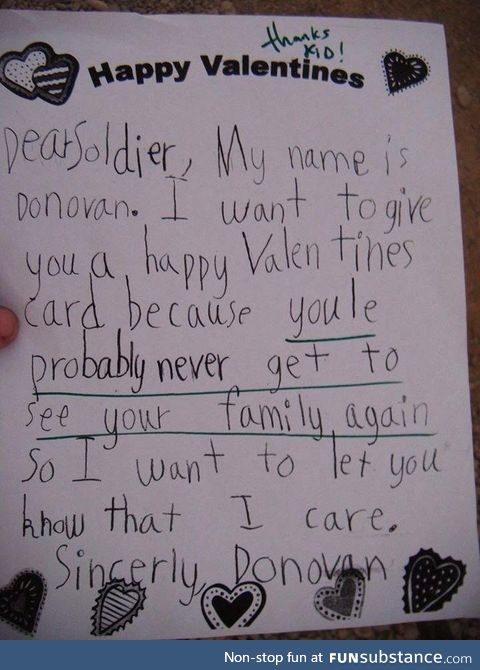 thanks
KID!
Happy Valentines
Dear Soldier, My name is
Donovan. I want to give
you a happy Valentines
card because youle
probably never get to
see your family again
So I want to let you
know that I care.
Sincerly, Donovan
Non-stop fun at FUNsubstance.com